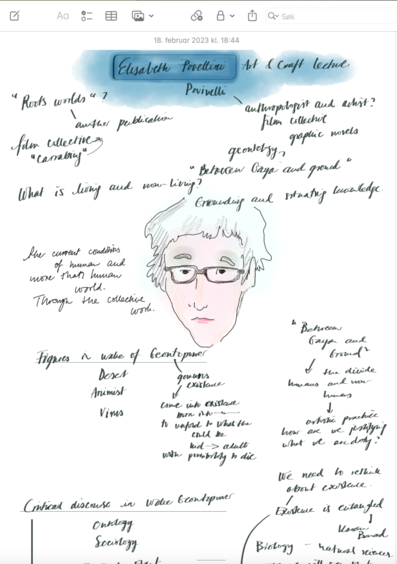 Aa
Søk
18. februar 2023 kl. 18:44
Elisabeth Povellini Art & Craft lecture
Povivelli
"Roots worlds"?
another publication
film collective
"carrabing"
anthropologist and artist?
film collective
graphic novels
geontology?
"Between Gaya and ground"
What is living and non-living?
Grounding and situating knowledge
the current condition
of human and
more than human
world.
Through the collective
work.
"Between
Gaya and
Ground"
the divide
humans and non
humans
artistic practice
how are we justifying
what we are doing?
Figures in wake of Geontopower
Desert
Animist
Virus
existence
come into existence
to unfold to what
could be
kid → adult
with possibility to die
We need to rethink
about existence.
Existence is entangled
Karen
Barad
Critical discourse in wake Geontopower
Ontology
Sociology
Biology - natural sciences